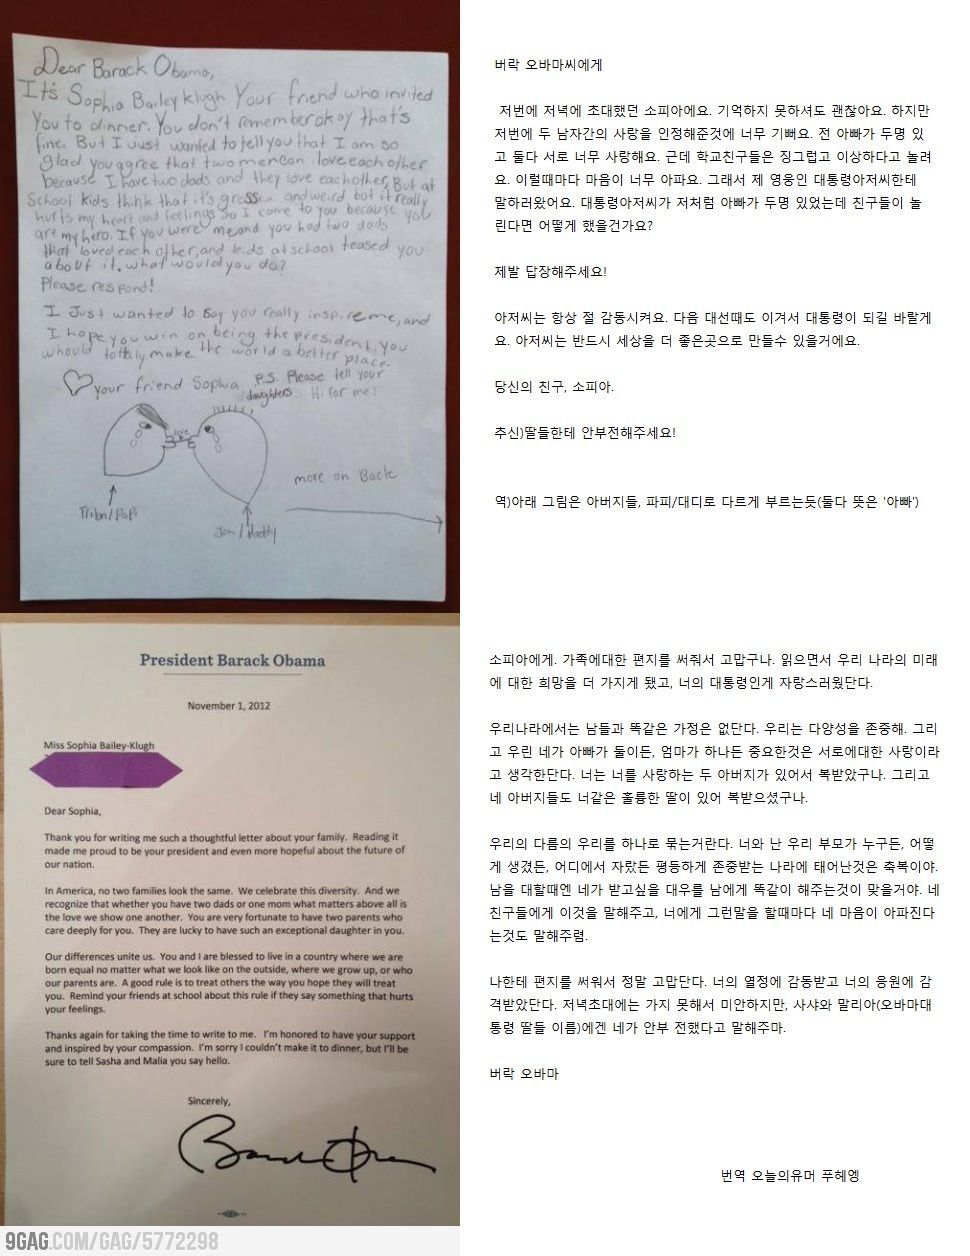 Dear Barack Obama,
It's Sophia Bailey klugh Your friend who invited
You to dinner. You don't remember okay that's
fine. But I Just wanted to tell you that I am so
glad you agree that two men can love each other
because I have two dads and they love each other. But at
School kids think that it's gross and weird but it really
hurts my heart and feelings So I come to you because you
are my hero. If you were me and you had two dads
that loved each other, and kids at school teased you
about it, what would you do?
Please respond!
I Just wanted to say you really inspire me, and
I hope you win on being the president. You
whould totally make the world a better place.
your friend Sophia
P.S. Please tell your
daughters Hi for me!
love
more on Back
Triban/Papi
Jon/Daddy
버락 오바마씨에게
저번에 저녁에 초대했던 소피아에요. 기억하지 못하셔도 괜찮아요. 하지만
저번에 두 남자간의 사랑을 인정해준것에 너무 기뻐요. 전 아빠가 두명 있
고 둘다 서로 너무 사랑해요. 근데 학교친구들은 징그럽고 이상하다고 놀려
요. 이럴때마다 마음이 너무 아파요. 그래서 제 영웅인 대통령아저씨한테
말하러왔어요. 대통령아저씨가 저처럼 아빠가 두명 있었는데 친구들이 놀
린다면 어떻게 했을건가요?
제발 답장해주세요!
아저씨는 항상 절 감동시켜요. 다음 대선때도 이겨서 대통령이 되길 바랄게
요. 아저씨는 반드시 세상을 더 좋은곳으로 만들수 있을거에요.
당신의 친구, 소피아.
추신)딸들한테 안부전해주세요!
역)아래 그림은 아버지들, 파피/대디로 다르게 부르는듯(둘다 뜻은 '아빠')
President Barack Obama
November 1, 2012
Miss Sophia Bailey-Klugh
Dear Sophia,
Thank you for writing me such a thoughtful letter about your family. Reading it
made me proud to be your president and even more hopeful about the future of
our nation.
In America, no two families look the same. We celebrate this diversity. And we
recognize that whether you have two dads or one mom what matters above all is
the love we show one another. You are very fortunate to have two parents who
care deeply for you. They are lucky to have such an exceptional daughter in you.
Our differences unite us. You and I are blessed to live in a country where we are
born equal no matter what we look like on the outside, where we grow up, or who
our parents are. A good rule is to treat others the way you hope they will treat
you. Remind your friends at school about this rule if they say something that hurts
your feelings.
Thanks again for taking the time to write to me. I'm honored to have your support
and inspired by your compassion. I'm sorry I couldn't make it to dinner, but I'll be
sure to tell Sasha and Malia you say hello.
Sincerely,
소피아에게. 가족에대한 편지를 써줘서 고맙구나. 읽으면서 우리 나라의 미래
에 대한 희망을 더 가지게 됐고, 너의 대통령인게 자랑스러웠단다.
우리나라에서는 남들과 똑같은 가정은 없단다. 우리는 다양성을 존중해. 그리
고 우린 네가 아빠가 둘이든, 엄마가 하나든 중요한것은 서로에대한 사랑이라
고 생각한단다. 너는 너를 사랑하는 두 아버지가 있어서 복받았구나. 그리고
네 아버지들도 너같은 훌륭한 딸이 있어 복받으셨구나.
우리의 다름의 우리를 하나로 묶는거란다. 너와 난 우리 부모가 누구든, 어떻
게 생겼든, 어디에서 자랐든 평등하게 존중받는 나라에 태어난것은 축복이야.
남을 대할때엔 네가 받고싶을 대우를 남에게 똑같이 해주는것이 맞을거야. 네
친구들에게 이것을 말해주고, 너에게 그런말을 할때마다 네 마음이 아파진다
는것도 말해주렴.
나한테 편지를 써워서 정말 고맙단다. 너의 열정에 감동받고 너의 응원에 감
격받았단다. 저녁초대에는 가지 못해서 미안하지만, 사샤와 말리아(오바마대
통령 딸들 이름)에겐 네가 안부 전했다고 말해주마.
버락 오바마
번역 오늘의유머 푸헤엥
9GAG.COM/GAG/5772298